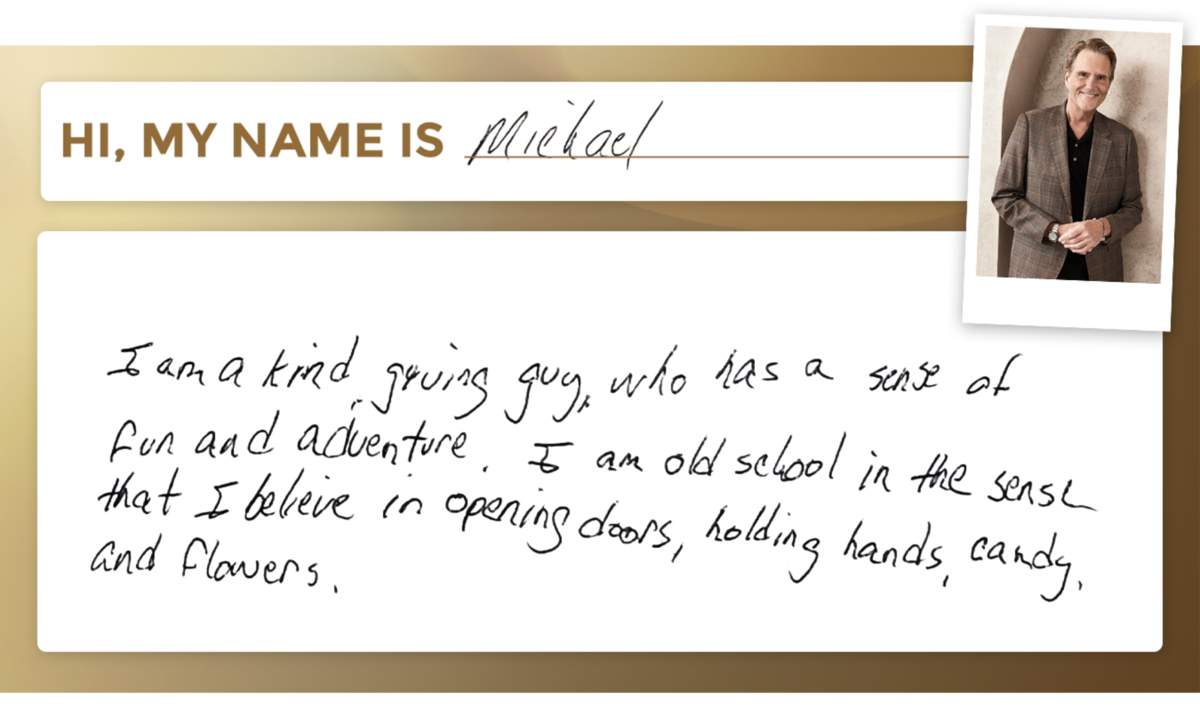 HI, MY NAME IS Michael
I am a kind, giving guy, who has a sense of
fun and adventure. I am old school in the sense
that I believe in opening doors, holding hands, candy,
and flowers.